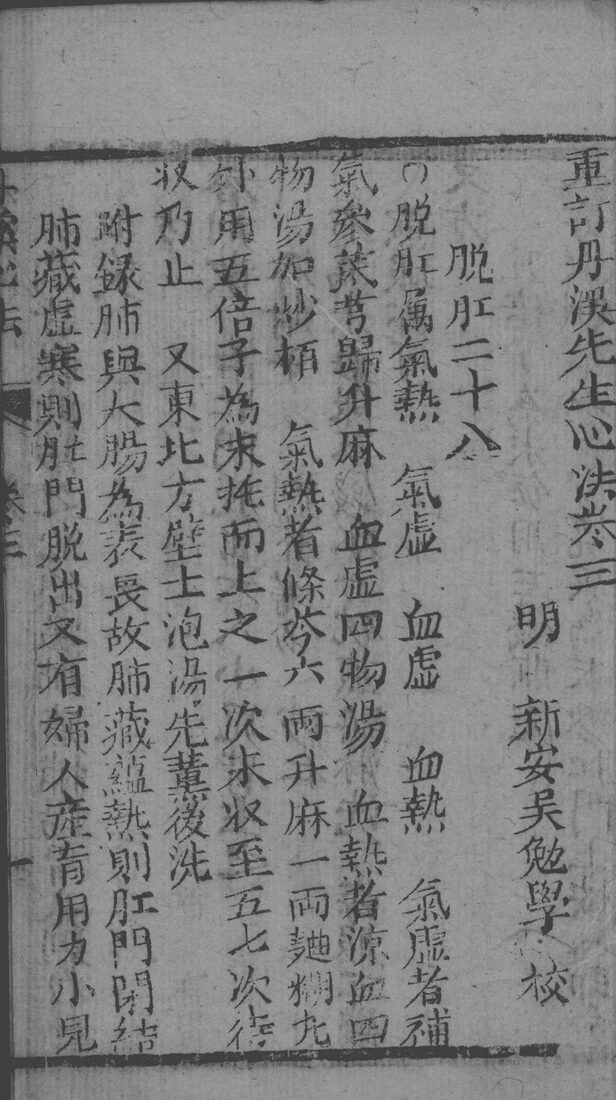 重訂丹溪先生心法卷三
明　新安吳勉學　校
脱肛二十八
○脱肛属氣熱　氣虛　血虛　血熱　氣虛者補
氣參茋芎歸升麻　血虛四物湯　血熱者涼血四
物湯加炒栢　氣熱者條芩六兩升麻一兩麯糊丸
外用五倍子為末托而上之一次未収至五七次待
収乃止　又東北方壁土泡湯先薰後洗
附録肺與大腸為表裏故肺藏蘊熱則肛門閉結
肺藏虛寒則肛門脱出又有婦人產育用力小兒
丹溪心法　卷三　一